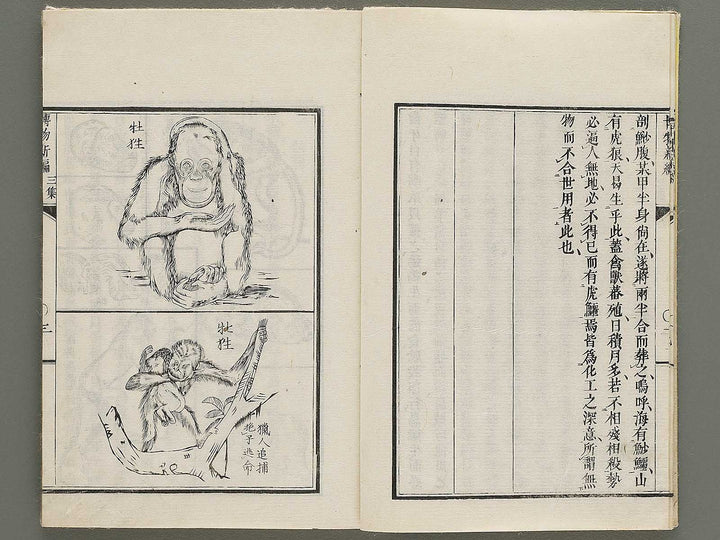 剖鯋腹某甲半身尙在遂將兩半合而葬之嗚呼海有鯋鱷山
有虎狼天曷生乎此蓋禽獸蕃殖日積月多若不相殘相殺勢
必逼人無地必不得已而有虎鱷焉皆爲化工之深意所謂無
物而不合世用者此也
博物新編
三集
牡狌
牝狌
獵人追捕
抱子逃命